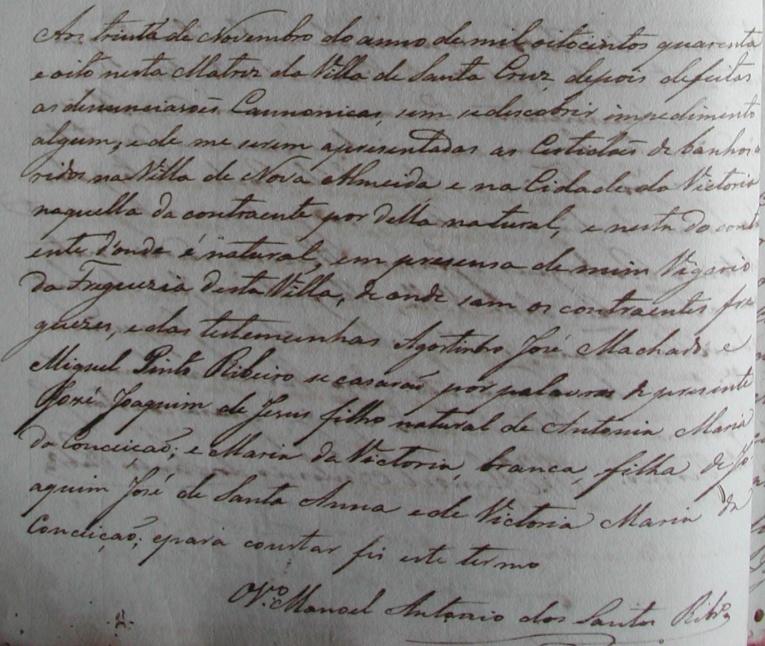 Aos trinta de Novembro do anno de mil oitocentos quarenta
e oito nesta Matriz da Villa de Santa Cruz, depois de feitas
as denunciaçoẽs Cannonicas, sem se descobrir impedimento
algum, e de me serem apresentadas as Certidoẽs de banhos
ridos na Villa de Nova Almeida e na Cidade da Victoria
naquella da contraente por della natural, e nesta do contra
ente d'onde é natural, em presensa de mim Vigario
da Freguezia desta Villa, de onde sam os contraentes fre
guezes, e das testemunhas Agostinho José Machado e
Miguel Pinto Ribeiro se casaraõ por palavras de presente
José Joaquim de Jesus filho natural de Antonia Maria
da Conceicaõ; e Maria da Victoria, branca, filha de Jo
aquim José de Santa Anna e de Victoria Maria da
Conceiçaõ; e para constar fiz este termo
O V.º Manoel Antonio dos Santos Ribr.º